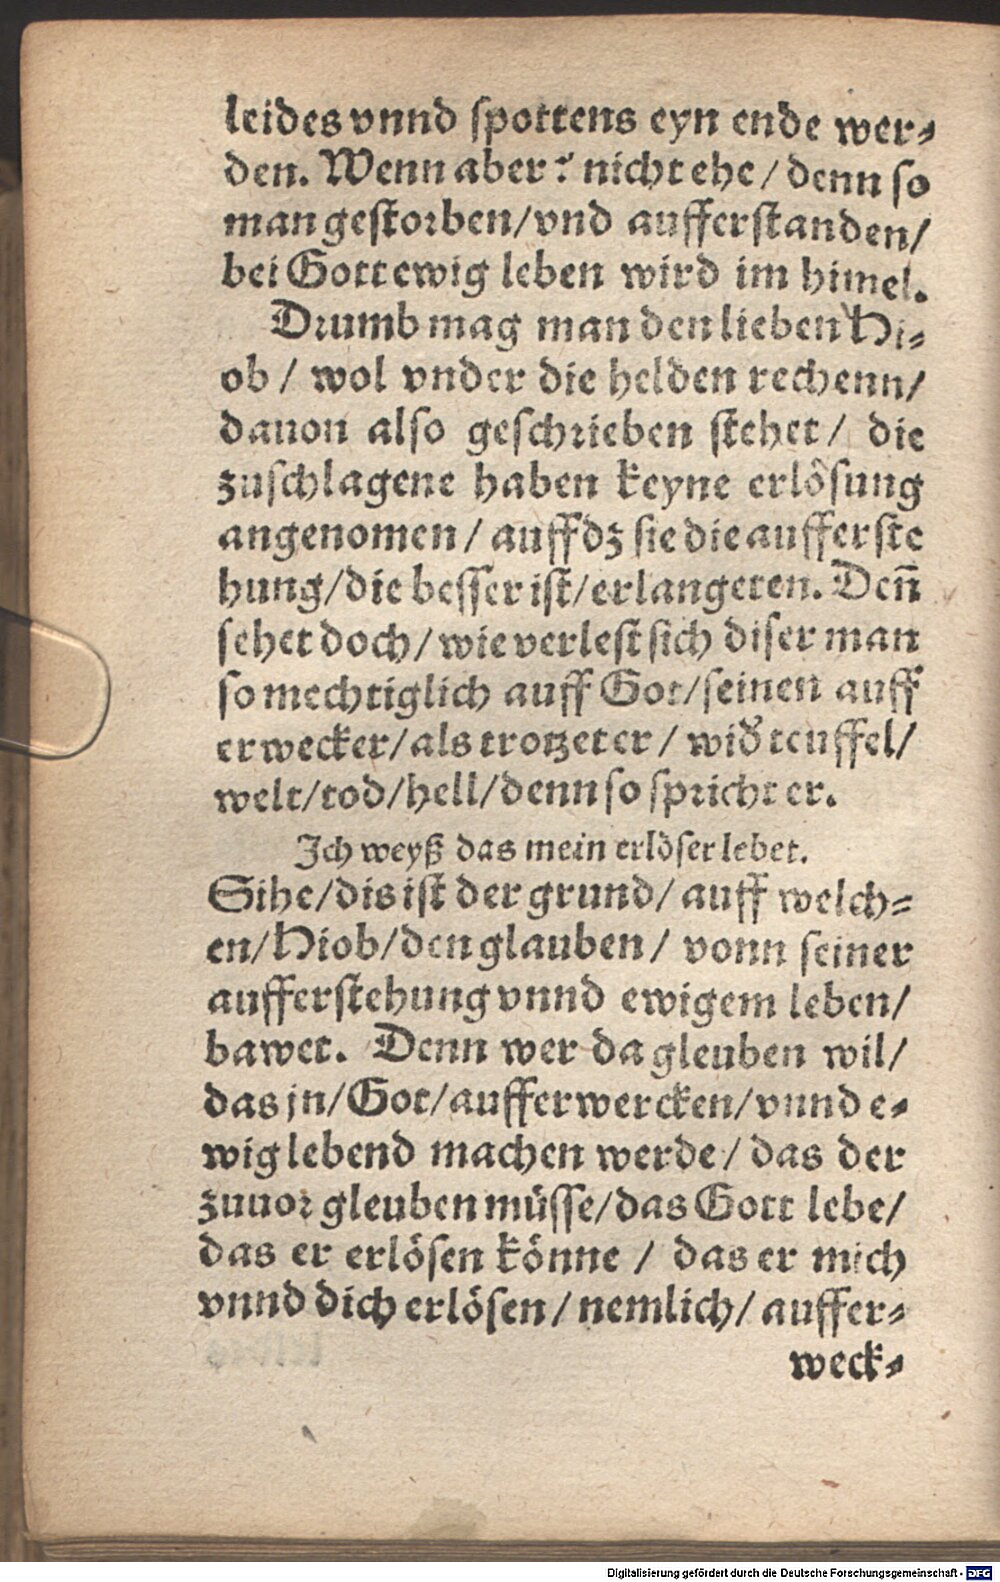 leides vnnd spottens eyn ende wer⸗
den. Wenn aber? nicht ehe / denn so
man gestorben/vnd aufferstanden/
bei Gott ewig leben wird im himel.
Drumb mag man den lieben Hi⸗
ob / wol vnder die helden rechenn/
dauon also geschrieben stehet / die
zuschlagene haben keyne erlösung
angenomen / auff dz sie die aufferste
hung/die besser ist/erlangeten. Deñ
sehet doch/wie verlest sich diser man
so mechtiglich auff Got/seinen auff
erwecker/als trotzet er / widð teuffel/
welt/tod/hell/denn so spricht er.
Ich weyß das mein erlöser lebet.
Sihe/dis ist der grund/ auff welch⸗
en/Hiob/den glauben/ vonn seiner
aufferstehung vnnd ewigem leben/
bawet. Denn wer da gleuben wil/
das jn/Got/aufferwercken/vnnd e⸗
wig lebend machen werde/ das der
zuuor gleuben müsse/das Gott lebe/
das er erlösen könne / das er mich
vnnd dich erlösen/nemlich/ auffer⸗
weck⸗
Digitalisierung gefördert durch die Deutsche Forschungsgemeinschaft - DFG